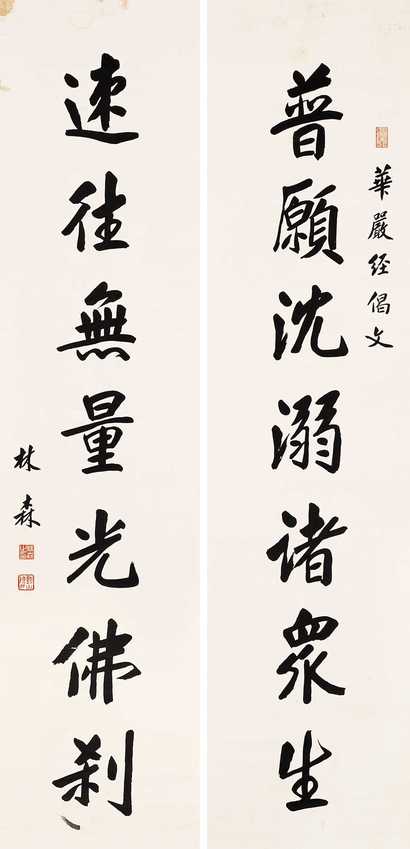 華嚴經偈文
普願沈溺諸眾生
速往無量光佛剎
林森